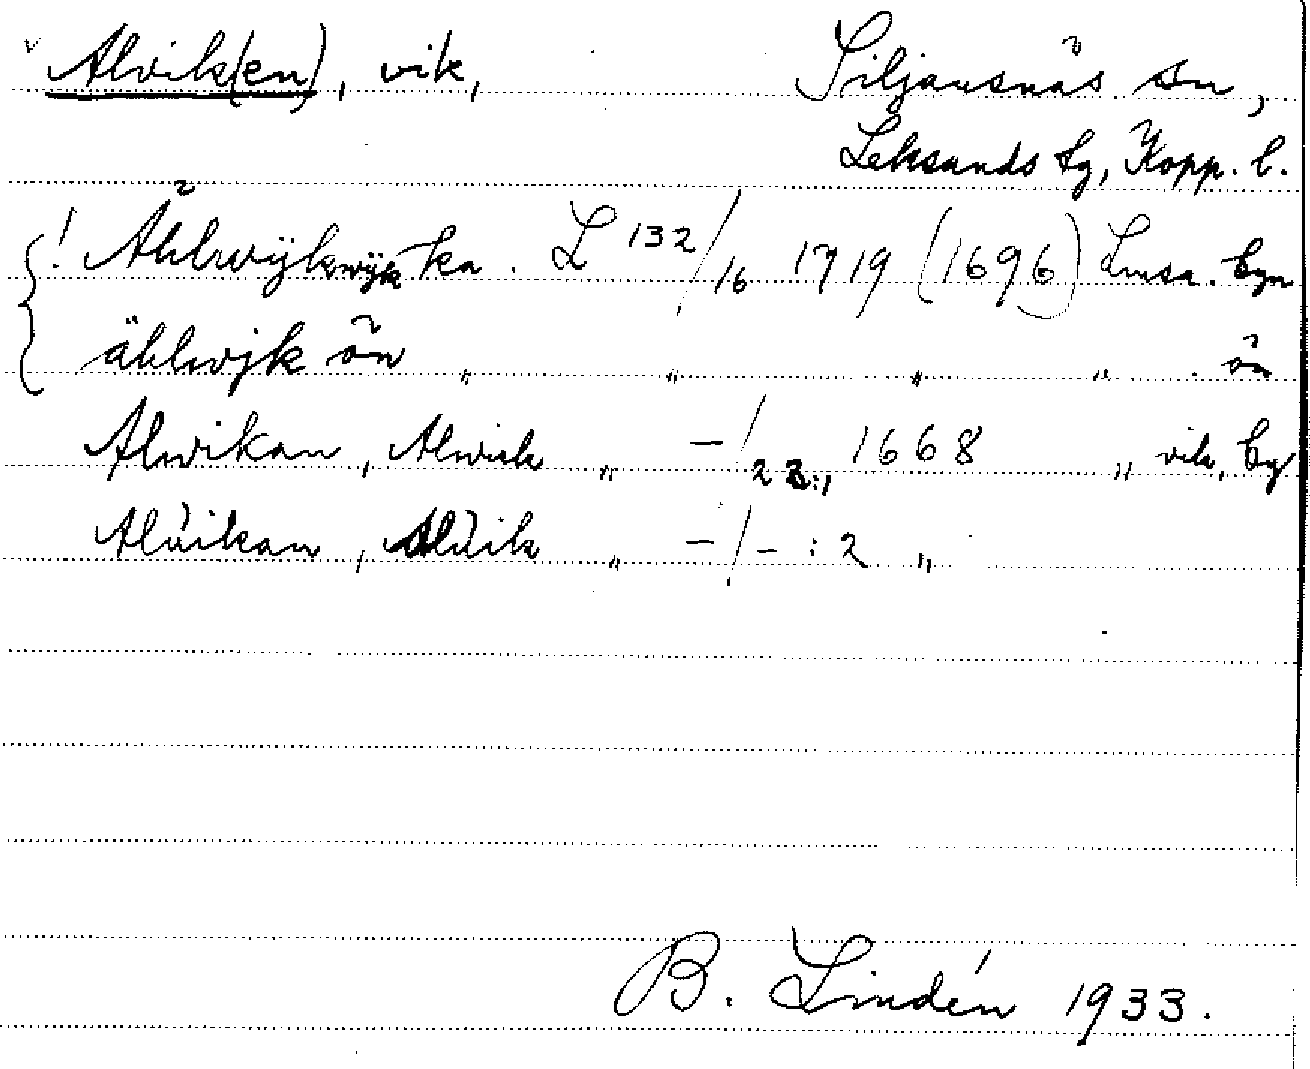 v Alvik(en), vik, Siljansnäs sn,
Leksands tg, Kopp. l.
! Åhlwÿkwÿkka. L 132/16 1719 (1696) Lmsa. byn
åhlwÿk ön „ „ „ „ ön
Alwikan, Alwik „ –/23:1 1668 „ vik, by
Alvikan, Alvik „ –/– : 2 „
B. Lindén 1933.